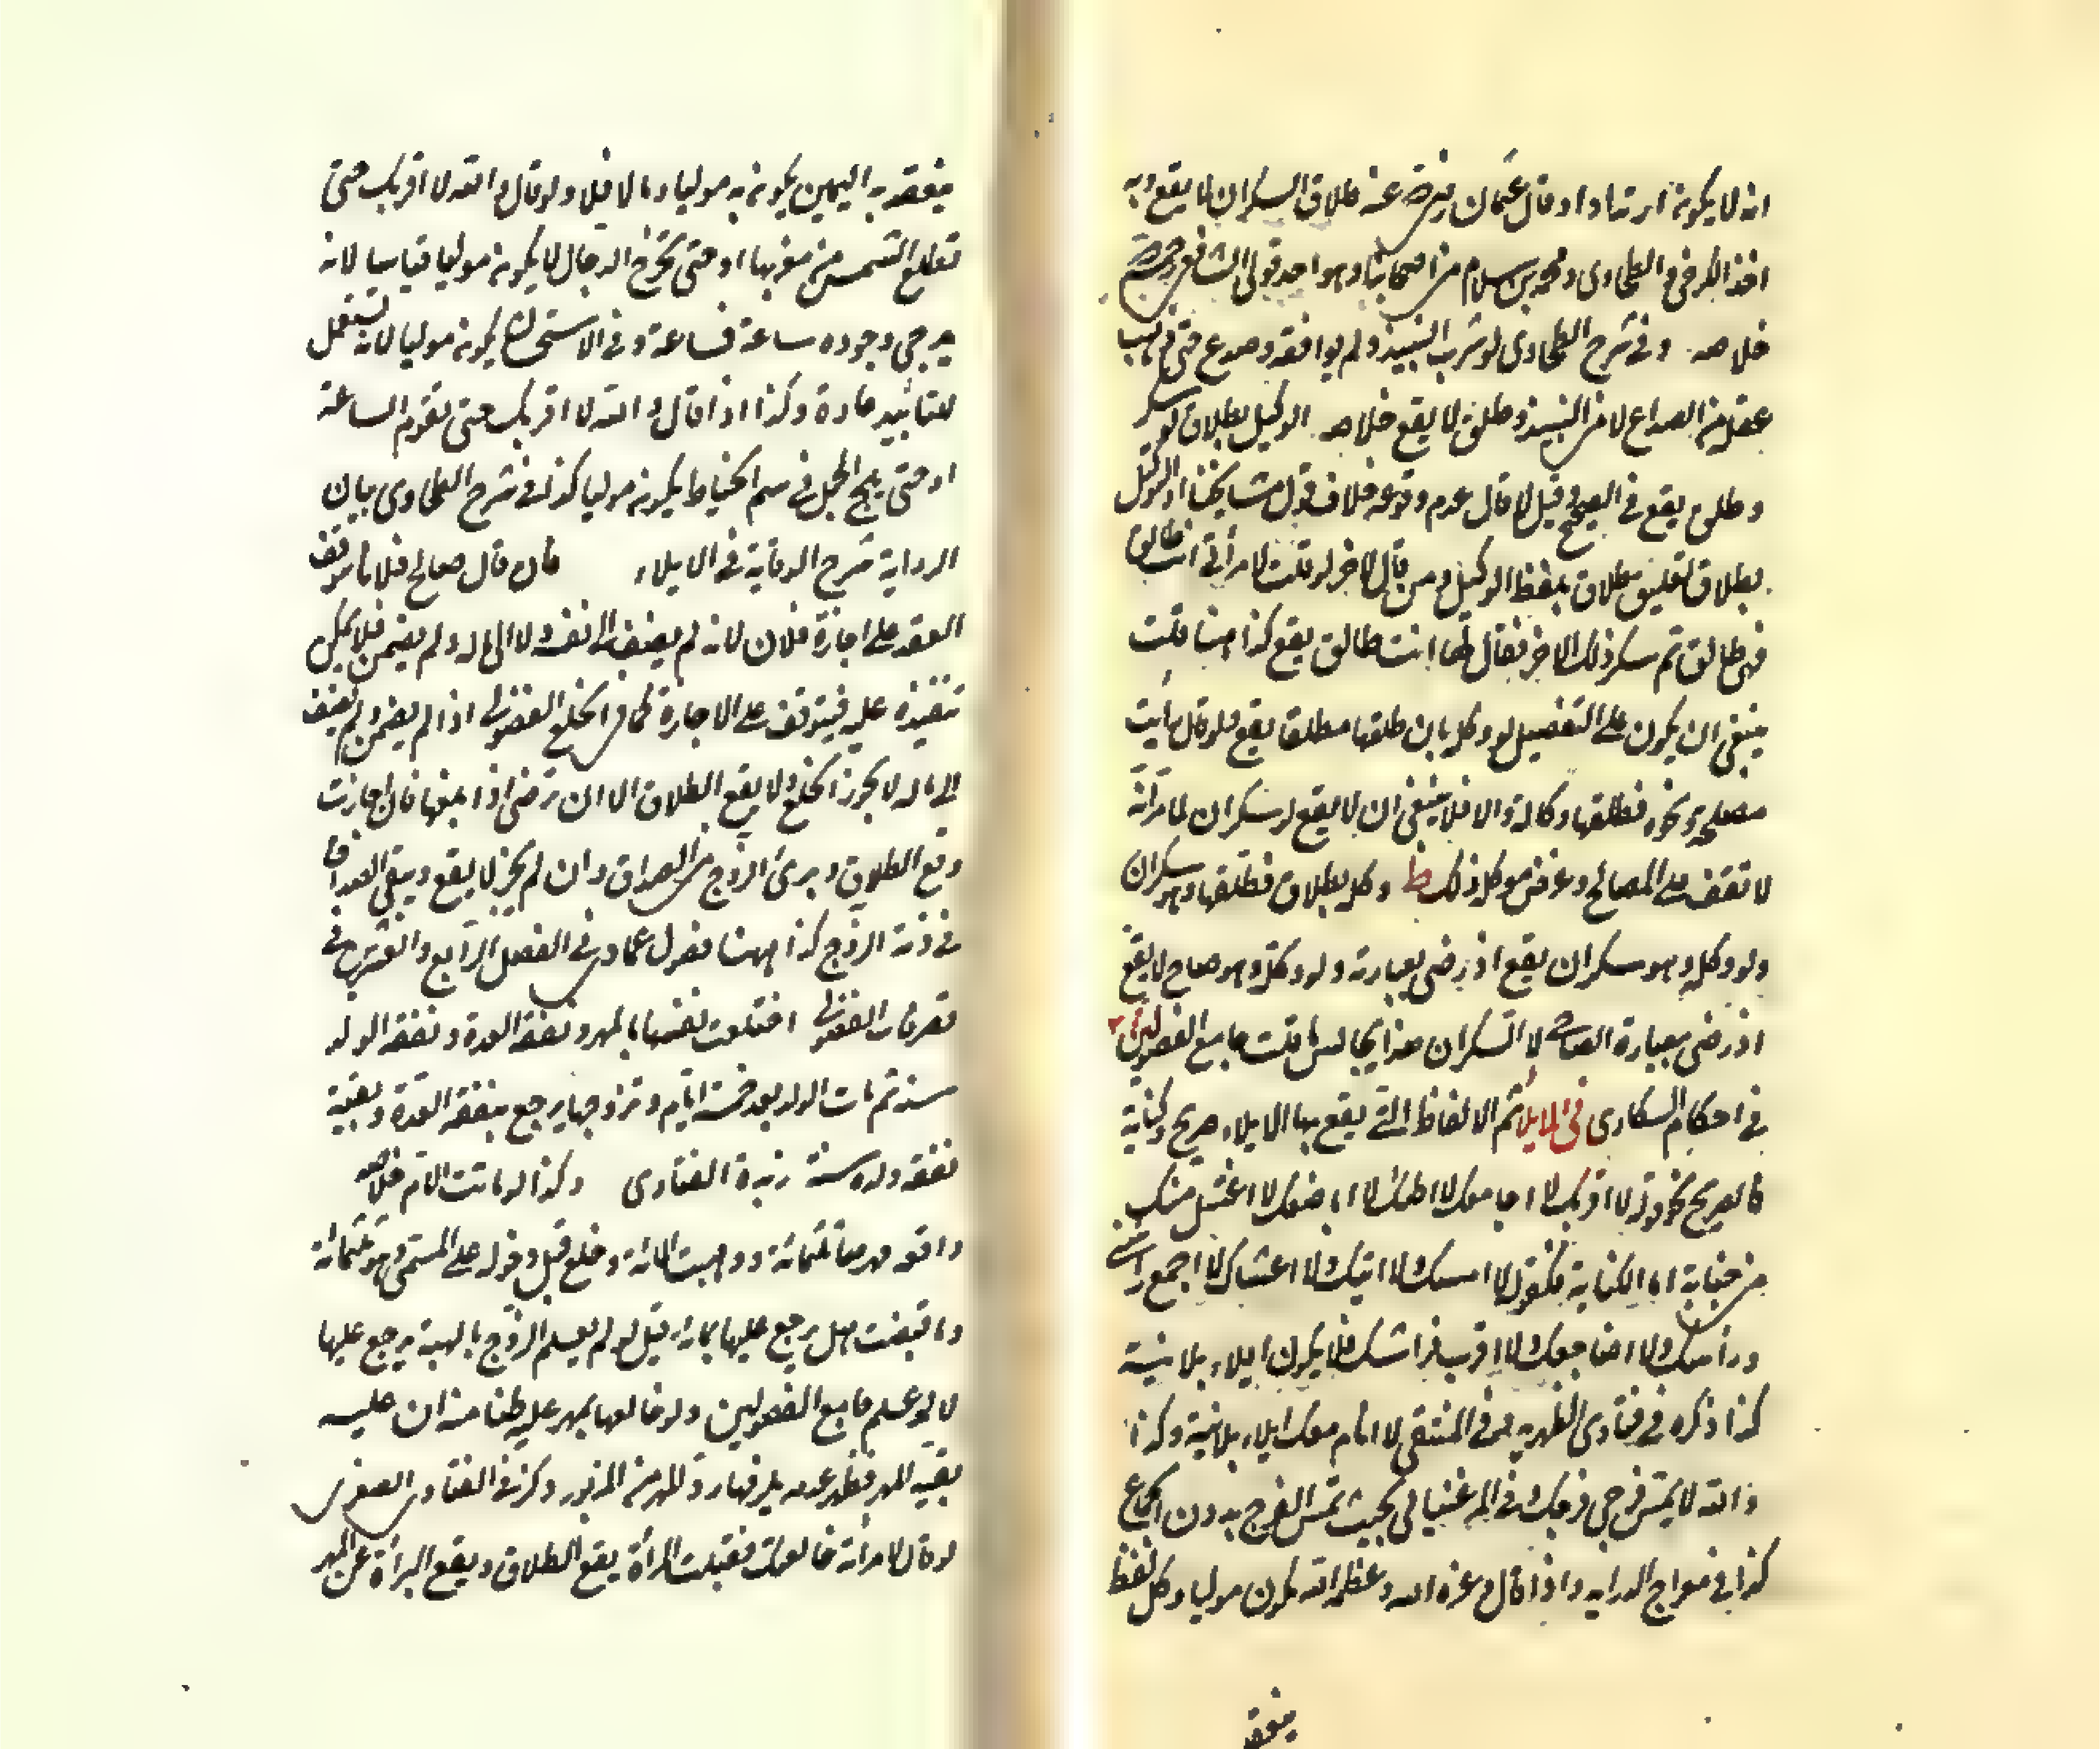 انه لا يكون ارتدادا وقال عثمان رضي عنه طلاق السكران لا يقع وبه
اخذ الكرخي والطحاوي ومحمد بن سلام من اصحابنا وهو احد قولي الشافعي
خلاصه وفي شرح الطحاوي لو شرب النبيذ ولم يوافقه وصدع حتى ذهب
عقله من الصداع لا من النبيذ وطلق لا يقع خلاصه الوكيل بطلاق لو سكر
وطلق يقع في الصحيح وقيل لا قال عدم وقوعه خلاف قول مشايخنا اذ التوكيل
بطلاق تعليق طلاق بلفظ الوكيل ومن قال لاخر لو قلت لامرأتي انت طالق
فهي طالق ثم سكر ذلك الاخر فقال لها انت طالق يقع كذا هنا قلت
ينبغي ان يكون على التفصيل لو وكله بان طلقها مطلقا يقع ولو قال رأيت
مصلحة ونحوه فطلقها وكالة والا فلا ينبغي ان لا يقع لو سكران لما مر انه
لا تقف على المصالح وغرض موكل ذلك ط وكله بطلاق فطلقها وهو سكران
ولو وكله وهو سكران يقع اذ رضي بعبارته ولو وكله وهو صاح لا يقع
اذ رضي بعبارة الصاحي لا السكران قلت جامع الفصولين
في احكام السكارى في الايلاء ثم الالفاظ التي يقع بها الايلاء صريح وكناية
فالصريح نحو قوله لا اقربك لا اجامعك لا اطأك لا اباضعك لا اغتسل منك
من جنابة اما الكناية فكقوله لا امسك لا اتيك لا اغشاك لا اجمع رأسي
ورأسك ولا اضاجعك ولا اقرب فراشك فلا يكون ايلاء بلا نية
كذا ذكره في فتاوى الظهيريه وفي المنتقى لا انام معك ايلاء بلا نية وكذا
والله لا يمس فرجي فرجك وفي المرغيناني بحيث تمس الفرج بدون الجماع
كذا في معراج الدرايه واذا قال وعزة الله وعظمة الله يكون موليا وكل لفظ
ينعقد
ينعقد به اليمين يكون به موليا وما لا فلا ولو قال والله لا اقربك حتى
تطلع الشمس من مغربها او حتى يخرج الدجال لا يكون موليا قياسا لانه
يرجى وجوده ساعة فساعة وفي الاستحسان يكون موليا لانه يستعمل
للتأبيد عادة وكذا اذا قال والله لا اقربك حتى تقوم الساعة
او حتى يلج الجمل في سم الخياط يكون موليا كذا في شرح الطحاوي بيان
الرواية شرح الوقاية في الايلاء فان قال صالح فلانا توقف
العقد على اجازة فلان لانه لم يضف الى نفسه ولا الى ماله ولم يضمن فلا يمكن
تنفيذه عليه فيتوقف على الاجازة كما في الخلع الفضولي اذا لم يضمن ولم يضف
الى ماله لا يجوز الخلع ولا يقع الطلاق الا ان ترضى اذا بلغها فان اجازت
وقع الطلاق وبرئ الزوج من الصداق وان لم يجز لا يقع ويبقى الصداق
في ذمة الزوج كذا ههنا فصول عمادي في الفصل الرابع والعشرين في
تصرفات الفضولي اختلعت نفسها بالمهر ونفقة العدة ونفقة الولد
سنة ثم مات الولد بعد خمسة ايام وتزوجها يرجع بنفقة العدة وبقية
نفقة ولده سنة زبدة الفتاوى وكذا لو ماتت الام خلاصه
واقعه مهرها ثلثمائة ووهبت المائة وخلع قبل دخوله على المسمى وهو ثلثمائة
وما قبضت هل يرجع عليها بمائة قيل لو لم يعلم الزوج بالهبة يرجع عليها
لا لو علم جامع الفصولين ولو خالعها بمهر عليه ظنا منه ان عليه
بقية المهر فظهر عدمه يلزمها رد المهر من المزبور وكذا في الفتاوى الصغرى
لو قال لامرأته خالعتك فقبلت المرأة يقع الطلاق ويقع البرأة عن المهر